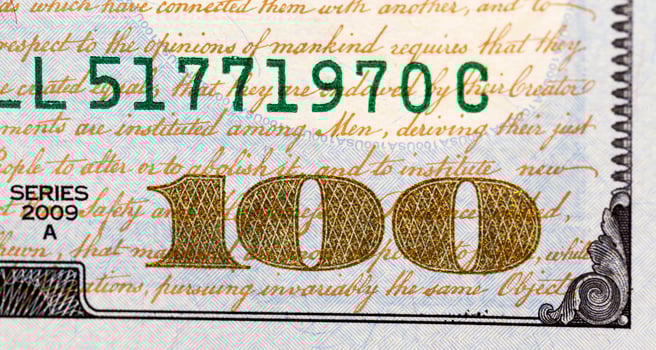 which have connected them with another, and to
respect to the opinions of mankind requires that they
LL 51771970 C
created equal, that they are endowed by their Creator
ments are instituted among Men, deriving their just
People to alter or to abolish it, and to institute new
SERIES
2009
A
100
Safety and
hewn, that
while
ations, pursuing invariably the same Object